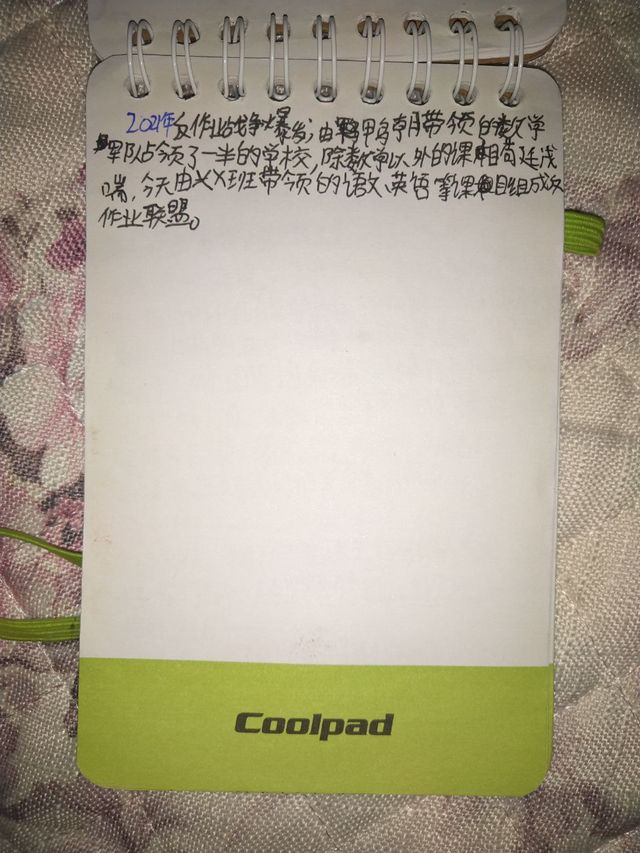 2021年反作业战争爆发；由甲乌带领的数学
军队占领了一半的学校，除数学以外的课苟延残
喘，今天由XX班带领的语文、英语等课目组成反
作业联盟。
Coolpad